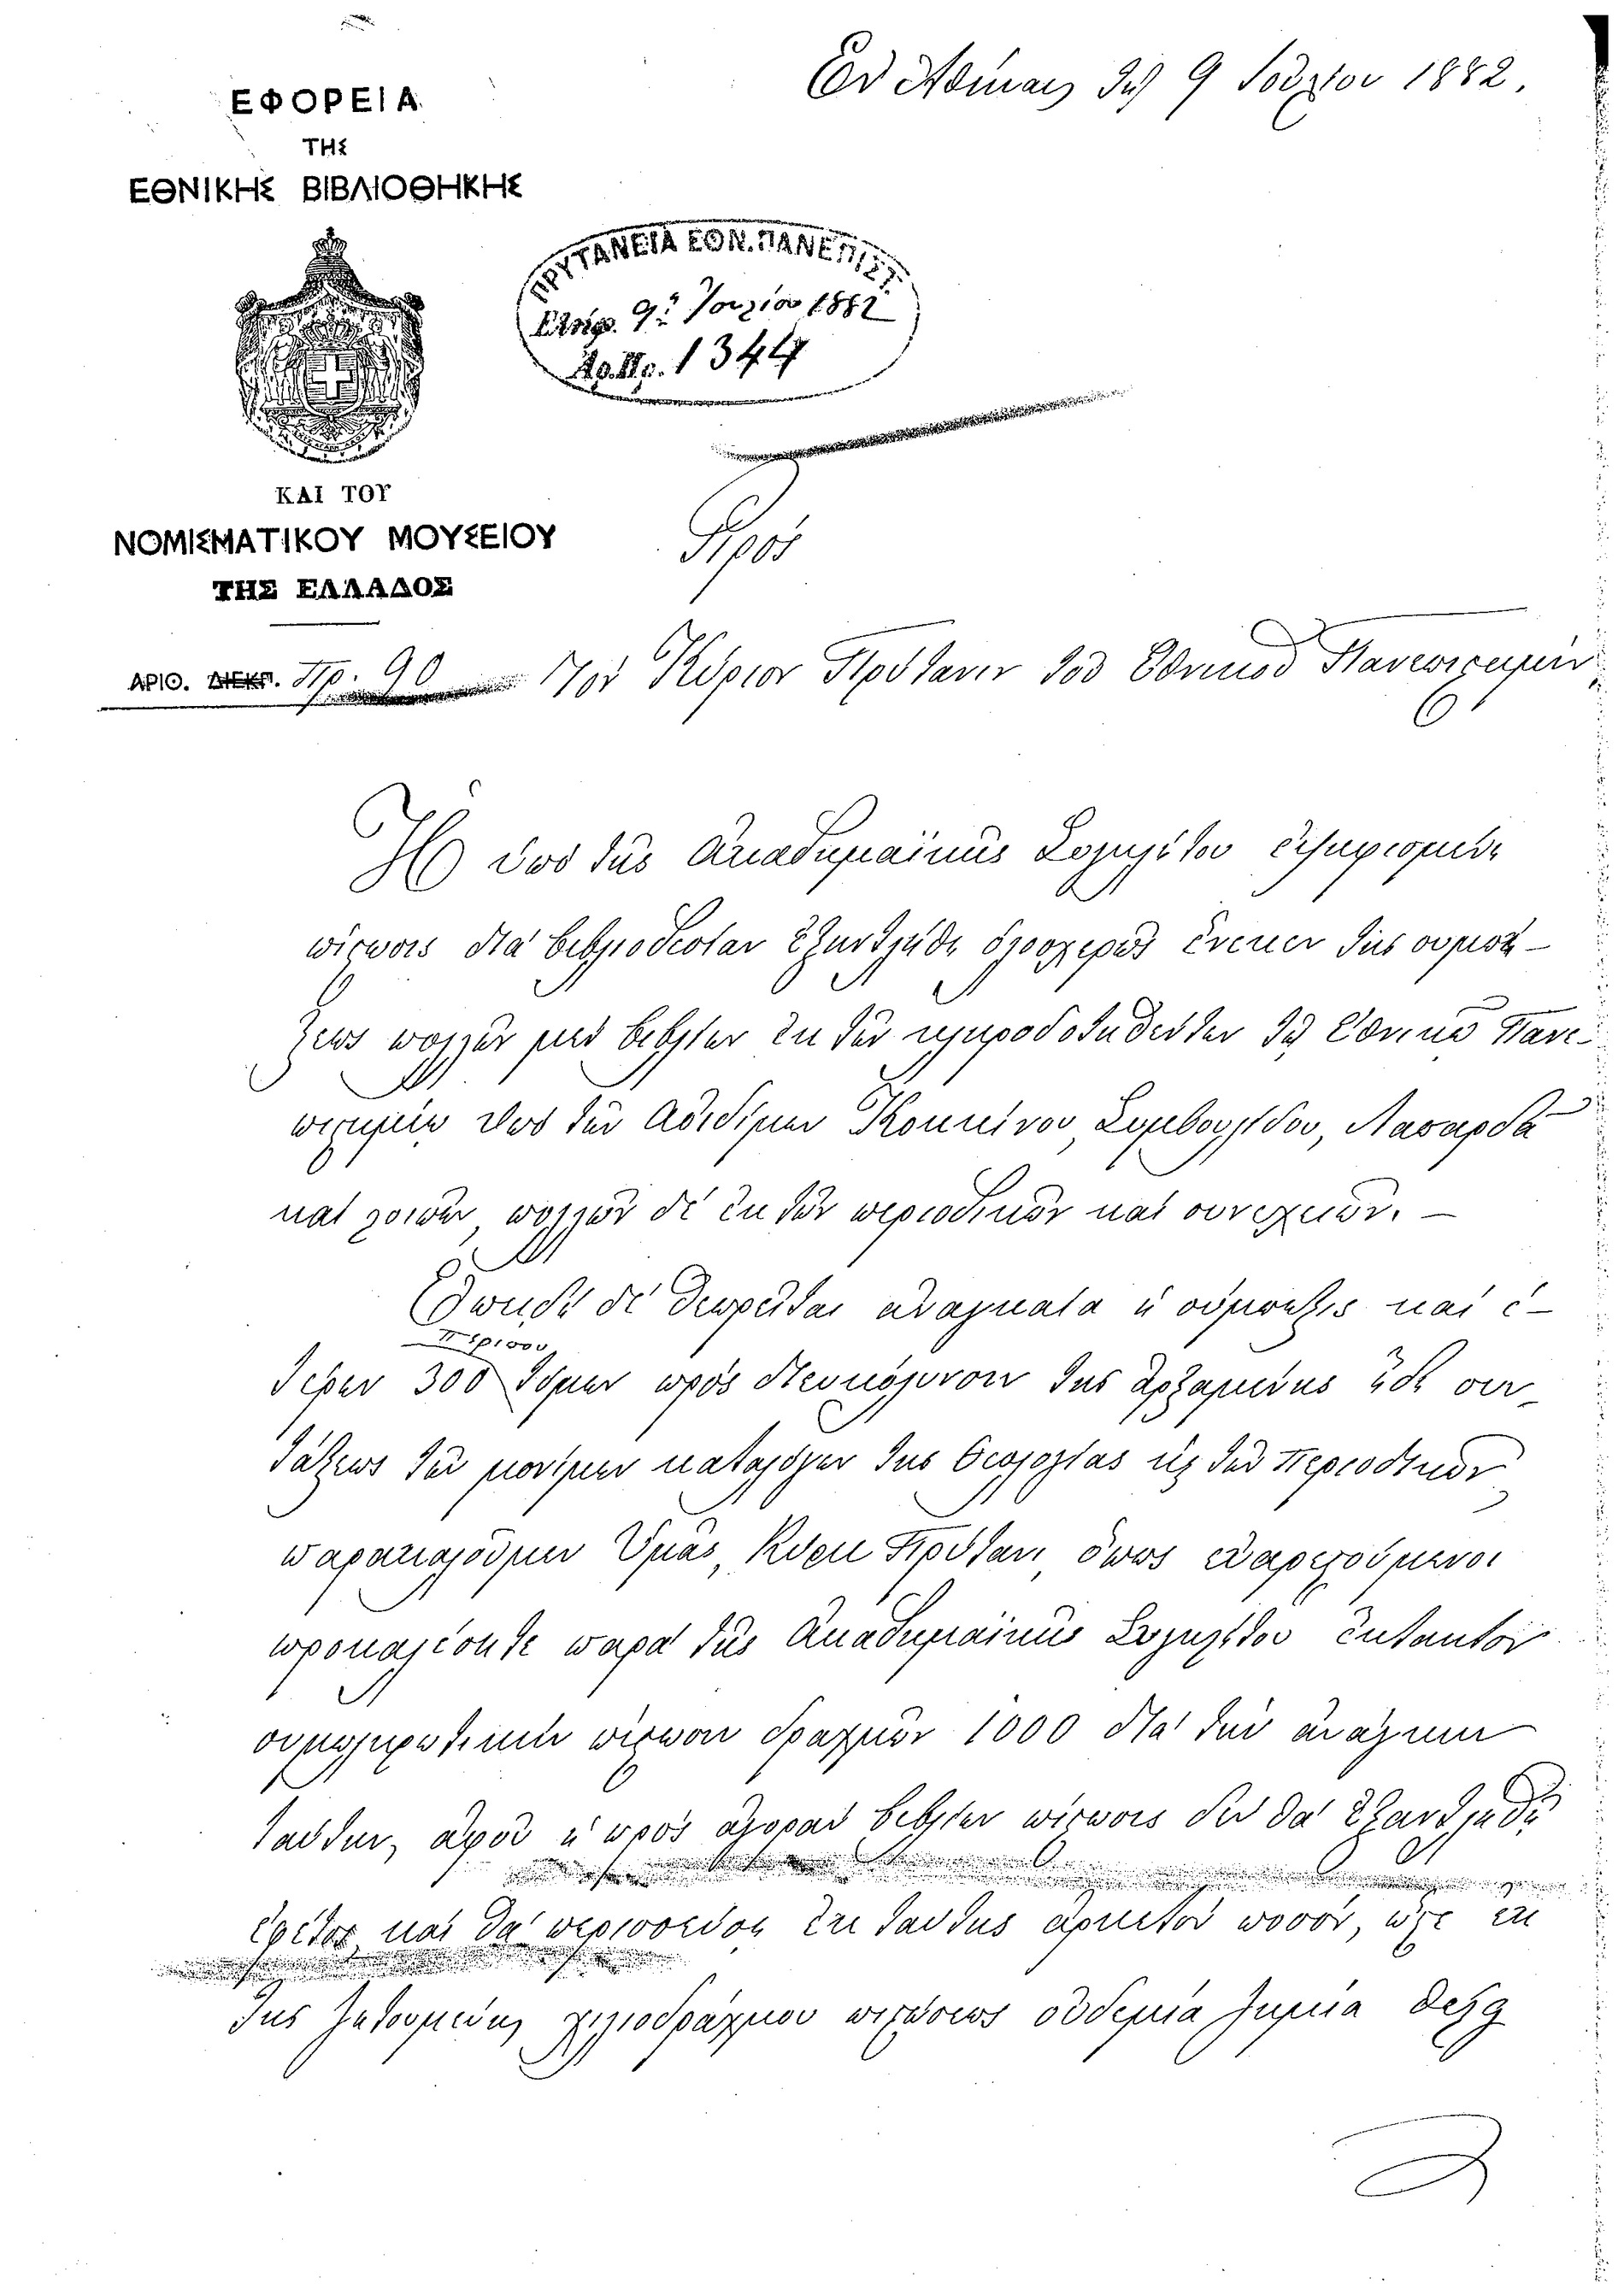 Ἐν Ἀθήναις τῇ 9 Ἰουλίου 1882.
ΕΦΟΡΕΙΑ
ΤΗΣ
ΕΘΝΙΚΗΣ ΒΙΒΛΙΟΘΗΚΗΣ
ΠΡΥΤΑΝΕΙΑ ΕΘΝ. ΠΑΝΕΠΙΣΤ.
9ῃ Ἰουλίου 1882
Ἀρ. Πρ. 1344
ΚΑΙ ΤΟΥ
ΝΟΜΙΣΜΑΤΙΚΟΥ ΜΟΥΣΕΙΟΥ
ΤΗΣ ΕΛΛΑΔΟΣ
Πρὸς
ΑΡΙΘ. ΔΙΕΚΠ. Πρ. 90
Τὸν Κύριον Πρύτανιν τοῦ Ἐθνικοῦ Πανεπιστημίου
Ἡ ὑπὸ τῆς Ἀκαδημαϊκῆς Συγκλήτου ἐψηφισμένη
πίστωσις διὰ βιβλιοδεσίαν ἐξηντλήθη ὁλοσχερῶς ἕνεκεν τῆς συμπή-
ξεως πολλῶν μὲν βιβλίων ἐκ τῶν κληροδοτηθέντων τῷ Ἐθνικῷ Πανε-
πιστημίῳ ὑπὸ τῶν ἀοιδίμων Κοκκίνου, Συμβουλίδου, Λασκαρίδου
καὶ λοιπῶν, πολλῶν δὲ ἐκ τῶν περιοδικῶν καὶ συνεχειῶν. —
Ἐπειδὴ δὲ θεωρεῖται ἀναγκαία ἡ σύμπηξις καὶ ἑ-
περίπου
τέρων 300 τόμων πρὸς διευκόλυνσιν τῆς ἀρξαμένης ἤδη συν-
τάξεως τῶν μονίμων καταλόγων τῆς Θεολογίας καὶ τῶν Περιοδικῶν
παρακαλοῦμεν Ὑμᾶς, Κύριε Πρύτανι, ὅπως εὐαρεστούμενοι
προκαλέσητε παρὰ τῆς Ἀκαδημαϊκῆς Συγκλήτου ἔκτακτον
συμπληρωτικὴν πίστωσιν δραχμῶν 1000 διὰ τὴν ἀνάγκην
ταύτην, ἀφοῦ ἡ πρὸς ἀγορὰν βιβλίων πίστωσις δὲν θὰ ἐξαντληθῇ
ἐφέτος καὶ θὰ περισσεύσῃ ἐκ ταύτης ἀρκετὸν ποσόν, ὥστε ἐκ
τῆς ζητουμένης χιλιοδράχμου πιστώσεως οὐδεμία ζημία θέλει